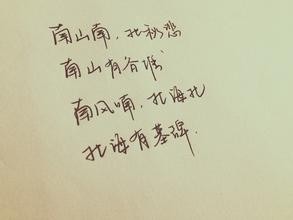 南山南，北秋悲
南山有谷堆
南风喃，北海北
北海有墓碑.